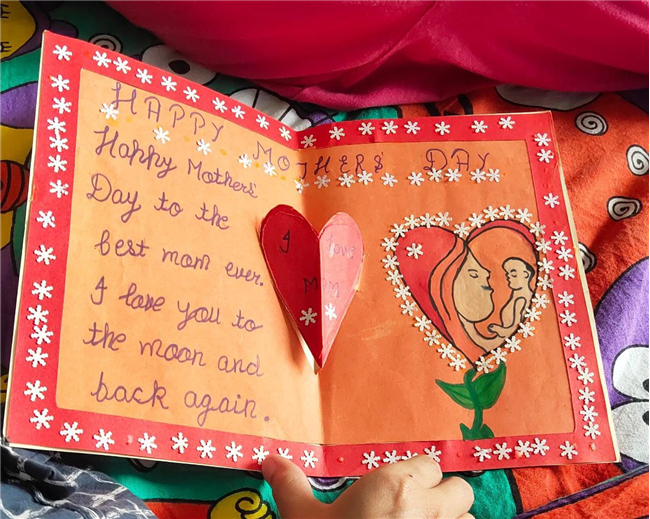 HAPPY MOTHERS' DAY
Happy Mothers'
Day to the
best mom ever.
I love you to
the moon and
back again.
I love
MOM